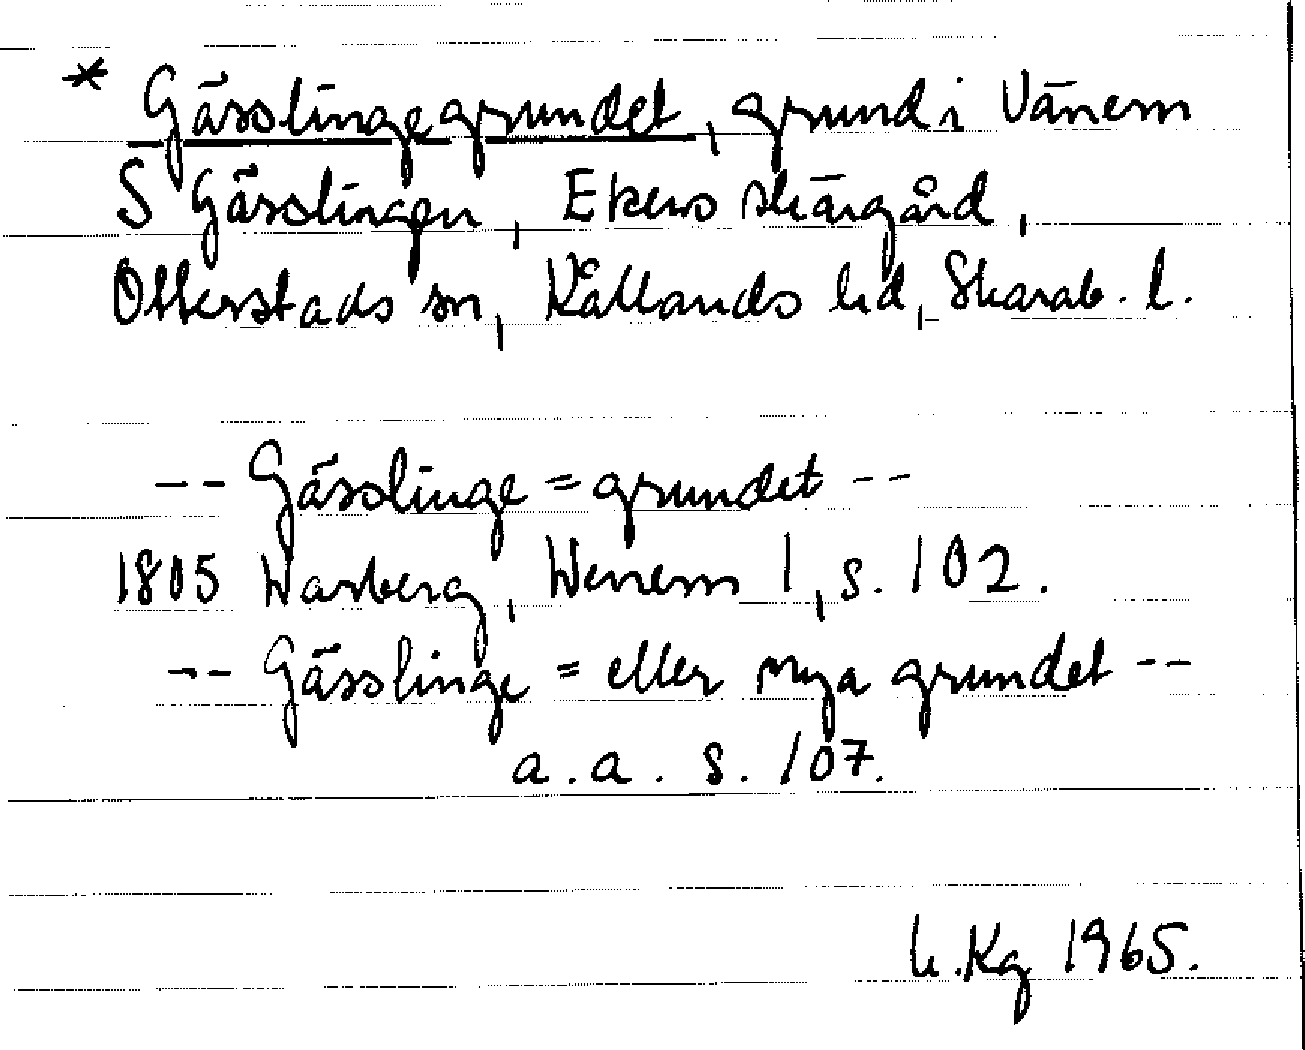 * Gässlingegrundet, grund i Vänern
S Gässlingen, Ekens skärgård,
Otterstads sn, Kållands hd, Skarab. l.
-- Gässlinge=grundet --
1805 Warberg, Wenern 1, s. 102.
-- Gässlinge= eller nya grundet --
a. a. s. 107.
Kg 1965.